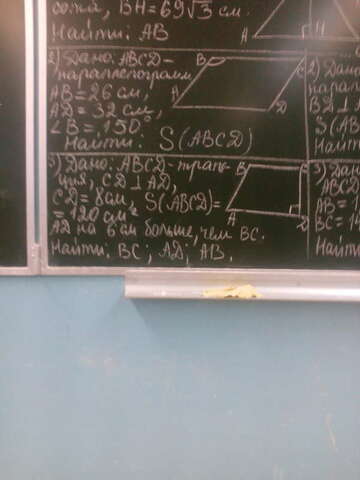 сота, BH = 69√3 см.
Найти: AB
A H
2) Дано: ABCD-
параллелограмм
AB = 26 см,
AD = 32 см,
∠B = 150°
Найти: S(ABCD)
B C
A D
3) Дано: ABCD-трапе-
ция, CD ⊥ AD,
CD = 8 см, S(ABCD) =
= 120 см²
AD на 6 см больше, чем BC.
Найти: BC; AD; AB.
B C
A D
2) Дано
парал
BD ⊥
S(AB
Найти
3) Дано
ABCD
AB = 1
BC = 1
Найти